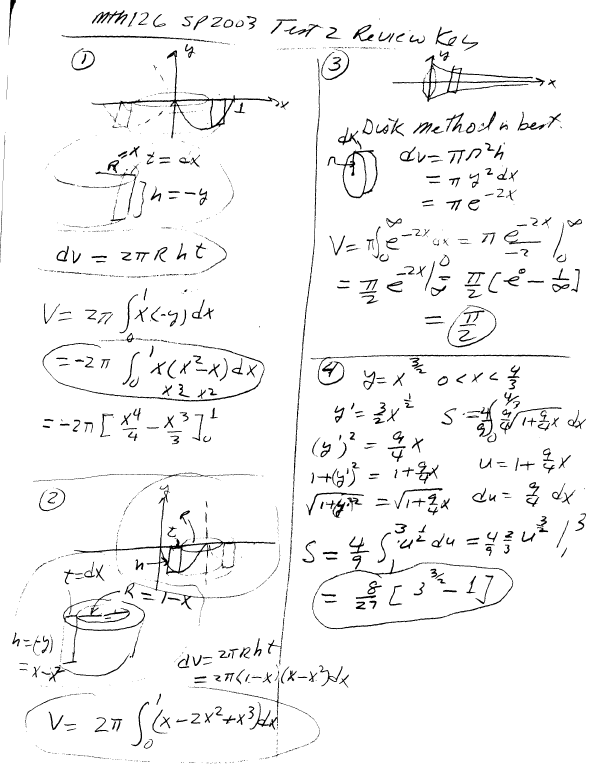 mth126 SP2003 Test 2 Review Key
①
y
x
1
R=x t = dx
h = -y
dv = 2πRht
V = 2π ∫₀¹ x(-y)dx
= -2π ∫₀¹ x(x²-x)dx
x3 x2
= -2π [x⁴/4 - x³/3]₀¹
②
y
R
t
h
t=dx
R = 1-x
h=(-y)
= x-x²
dv = 2πRht
= 2π(1-x)(x-x²)dx
V = 2π ∫₀¹ (x-2x²+x³)dx
③
y
x
Disk method is best.
dx
r
dv = πr²h
= πy²dx
= πe^(-2x)
V = π∫₀^∞ e^(-2x) dx = π e^(-2x)/-2 |₀^∞
= π/2 e^(-2x) |_∞^0 = π/2 [e⁰ - 1/∞]
= π/2
④ y = x^(3/2) 0<x<4/3
y' = 3/2 x^(1/2) S = 4/9 ∫₀^(4/3) 9/4 √(1+9/4 x) dx
(y')² = 9/4 x
1+(y')² = 1+9/4 x u = 1+9/4 x
√(1+(y')²) = √(1+9/4 x) du = 9/4 dx
S = 4/9 ∫₁³ u^(1/2) du = 4/9 2/3 u^(3/2) |₁³
= 8/27 [3^(3/2) - 1]